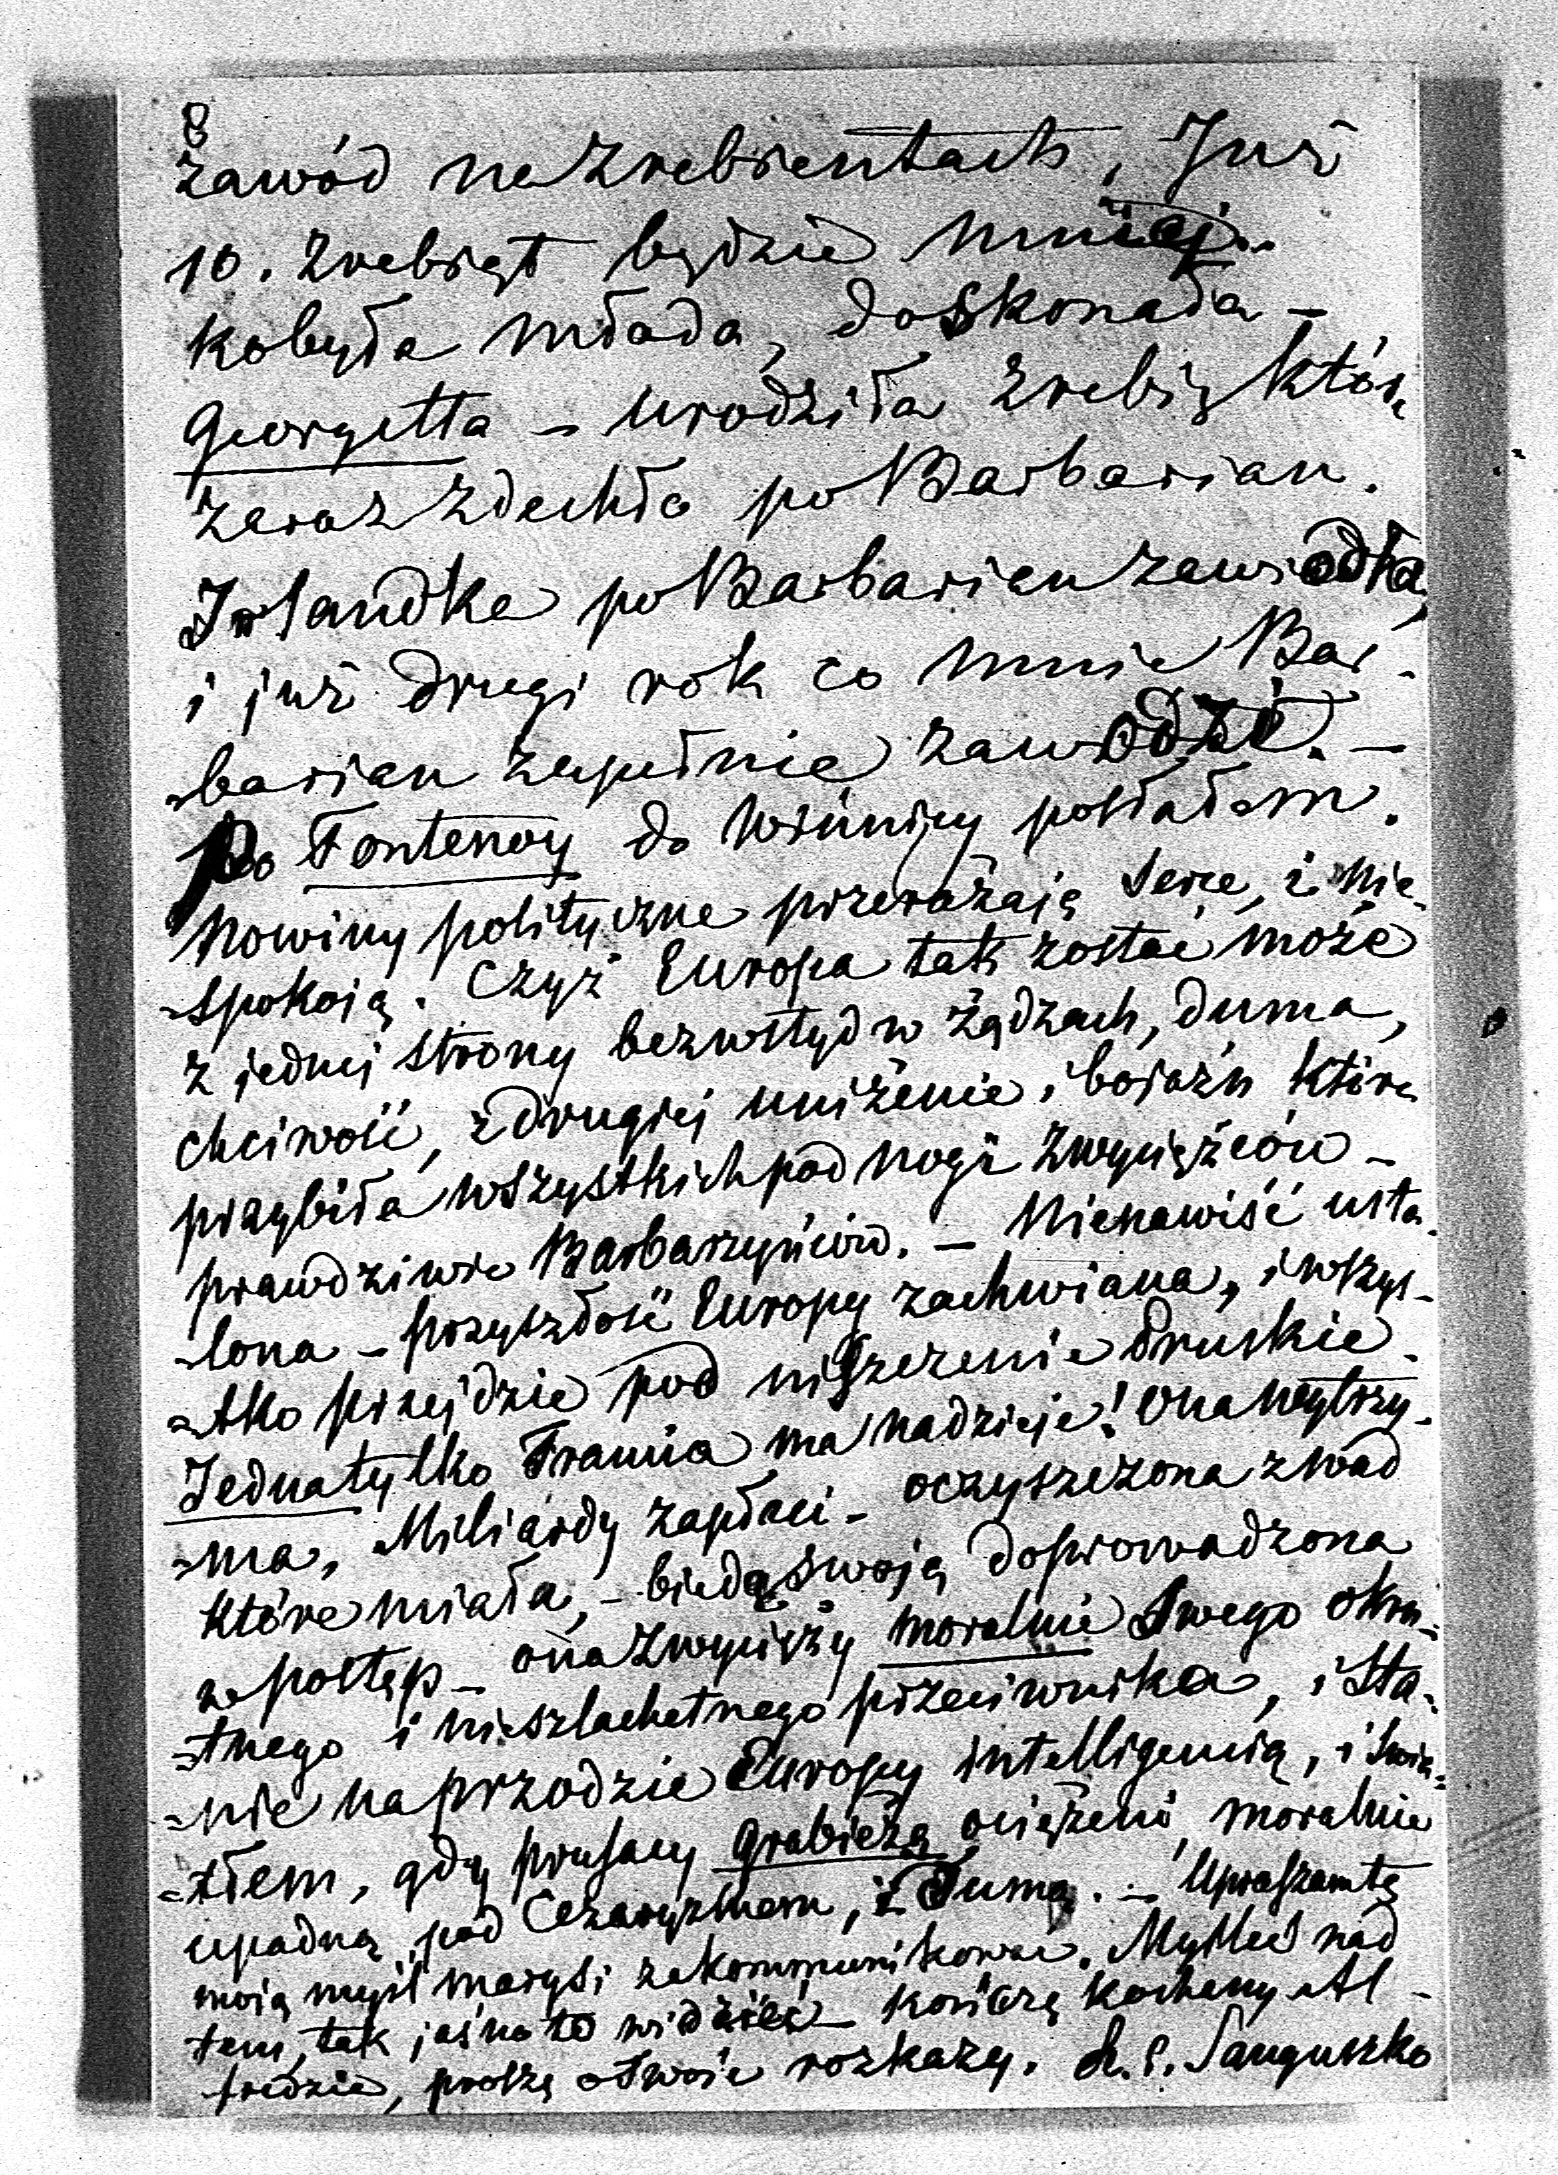 8
zawód na zrebientach, Już
10. zrebiąt będzie mniej..
kobyła młada, doskonała –
Georgetta – urodziła zrebię któr.
zaraz zdechło po Barbarian.
Irlandka po Barbarian zawiodła,
i już drugi rok co mnie Bar-
-barian zupełnie zawodzi. –
Po Fontenoy do Winnicy posłałem.
Nowiny polityczne przerażają serce, i nie-
-spokoją. Czyż Europa tak zostać może
z jednej strony bezwstyd w żądzach, duma,
chciwość, z drugiej uniżenie i bojaźń które
przybiła wszystkich pod nogi zwycięźców –
prawdziwie Barbarzyńców. – Nienawiść usta-
-lona – przyszłość Europy zachwiana, i wszys-
-tko przejdzie pod niszczenie Pruskie.
Jedna tylko Francia ma nadzieje! Ona wytrzy-
-ma, Miliardy zapłaci – oczyszczona z wad
które miała, – biedą swoją doprowadzona
w postęp – ona zwycięży moralnie swego okru-
-tnego i nieszlachetnego przeciwnika, i sta-
-nie na przodzie Europy intelligencią, i świa-
-tłem, gdy prusacy grabieżą ociążeni, moralnie
upadną pod Cezaryzmem, i Dumą. – Upraszam tę
moią myśl Marysi zakommunikować. Myśleć nad
tem, tak jasno to widzieć – kończę kochany Al-
fredzie, proszę o twoie rozkazy. R. S. Sanguszko